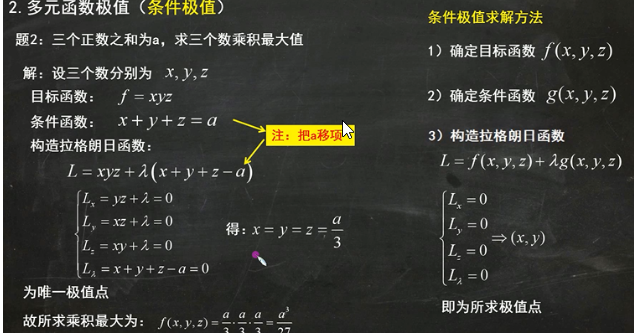 2. 多元函数极值（条件极值）
题2：三个正数之和为a，求三个数乘积最大值
解：设三个数分别为 x, y, z
目标函数： f = xyz
条件函数： x + y + z = a
注：把a移项
构造拉格朗日函数：
L = xyz + λ(x + y + z − a)
L_x = yz + λ = 0
L_y = xz + λ = 0
L_z = xy + λ = 0
L_λ = x + y + z − a = 0
得：x = y = z = a/3
为唯一极值点
故所求乘积最大为： f(x, y, z) = a/3 · a/3 · a/3 = a³/27
条件极值求解方法
1）确定目标函数 f(x, y, z)
2）确定条件函数 g(x, y, z)
3）构造拉格朗日函数
L = f(x, y, z) + λg(x, y, z)
L_x = 0
L_y = 0
L_z = 0
L_λ = 0
⇒ (x, y)
即为所求极值点